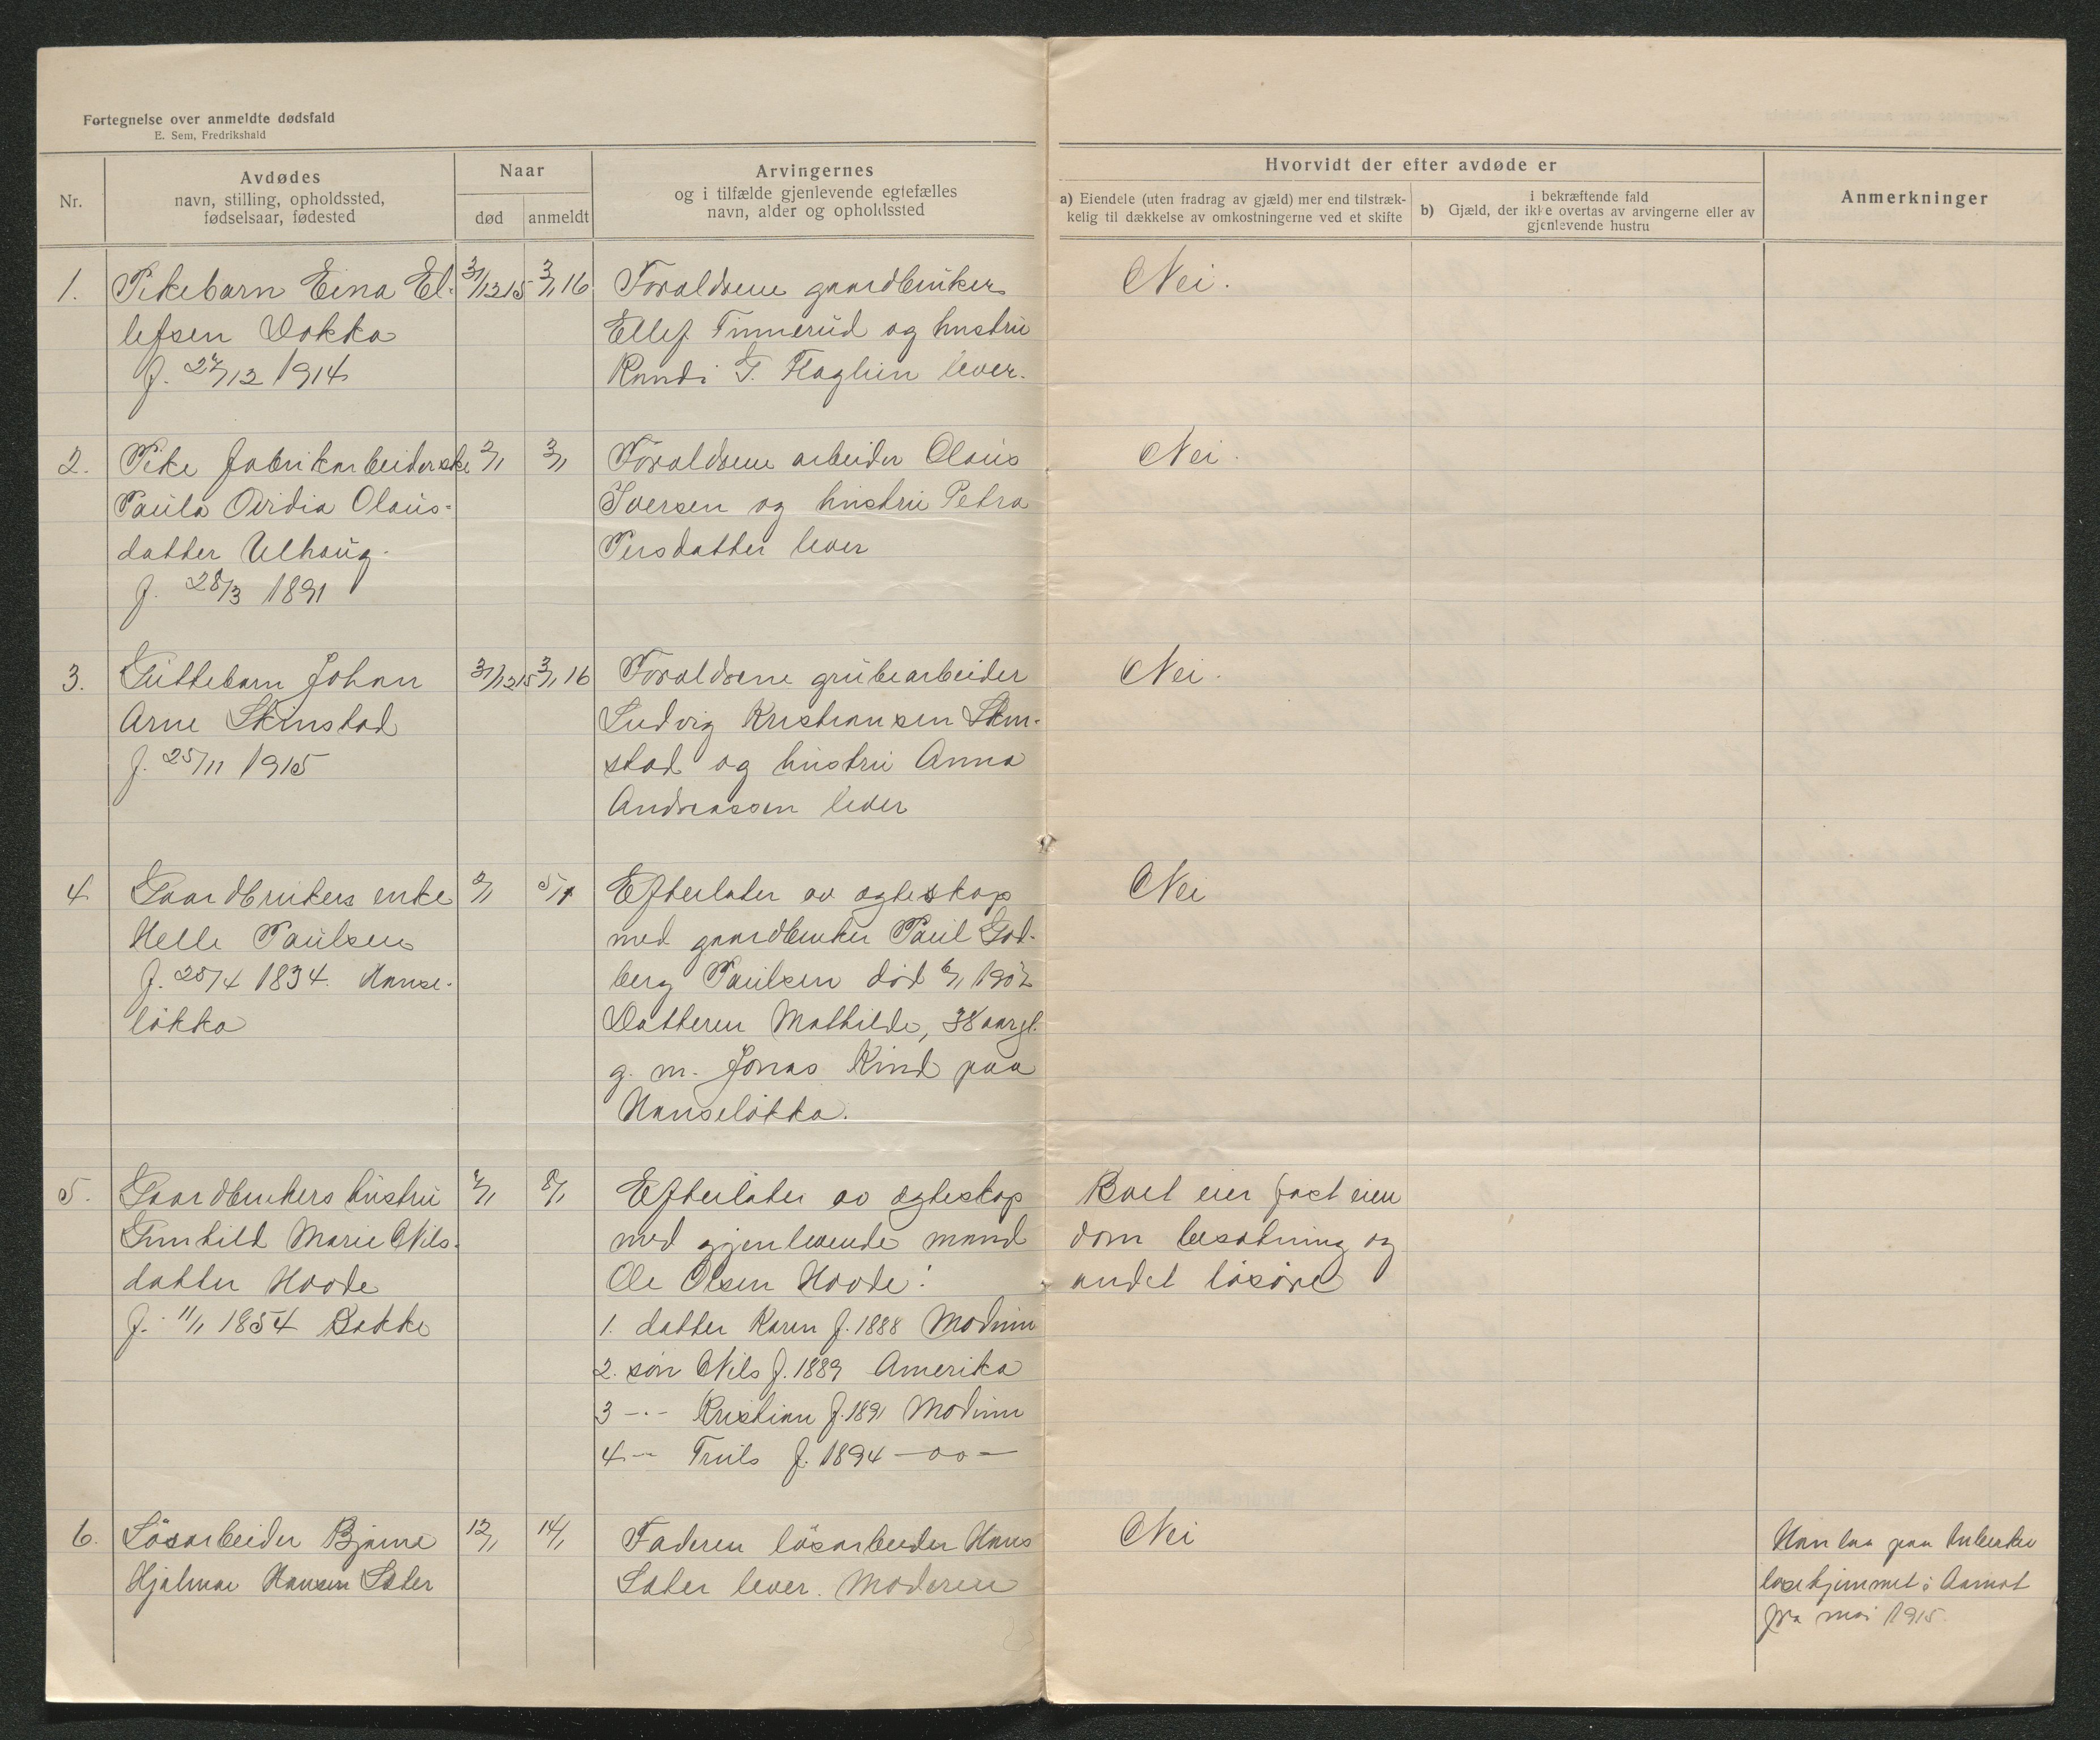 Fortegnelse over anmeldte dødsfald
E. Sem, Fredrikshald
Nr.
Avdødes
navn, stilling, opholdssted,
fødselsaar, fødested
Naar
død
anmeldt
Arvingernes
og i tilfælde gjenlevende egtefælles
navn, alder og opholdssted
Hvorvidt der efter avdøde er
a) Eiendele (uten fradrag av gjæld) mer end tilstræk-
kelig til dækkelse av omkostningerne ved et skifte
i bekræftende fald
b) Gjæld, der ikke overtas av arvingerne eller av
gjenlevende hustru
Anmerkninger
1.
Pikebarn Eina El-
lefsen Dokka
f. 27/12 1914
31/12 15
3/1 16
Forældrene gaardbruker
Ellef Tinnerud og hustru
Randi G. Flaglien lever.
Nei.
2.
Pike fabrikarbeiderske
Paula Ovidia Olaus-
datter Ulhaug.
f. 28/3 1891
2/1
3/1
Forældrene arbeider Olaus
Iversen og hustru Petra
Persdatter lever
Nei.
3.
Guttebarn Johan
Arne Skinstad
f. 25/11 1915
31/12 15
3/1 16
Forældrene grubearbeider
Ludvig Kristiansen Skin-
stad og hustru Anna
Andreassen lever
Nei.
4.
Gaardbrukers enke
Helle Paulsen
f. 25/4 1834. Hanse-
løkka
2/1
5/1
Efterlater av ægteskap
med gaardbruker Paul God-
berg Paulsen død 6/1 1902
Datteren Mathilde, 38 aar gl.
g. m. Jonas Kind paa
Hanseløkka.
Nei
5.
Gaardbrukers hustru
Gunhild Marie Nils-
datter Hovde
f. 11/1 1854 Bakke
7/1
8/1
Efterlater av ægteskap
med gjenlevende mand
Ole Olsen Hovde:
1. datter Karen f. 1888 Modum
2. søn Nils f. 1889 Amerika
3 -"- Kristian f. 1891 Modum
4 -"- Truls f. 1894 -oo-
Boet eier fast eien
dom besætning og
andet løsøre
6.
Løsarbeider Bjarne
Hjalmar Hansen Sæter
12/1
14/1
Faderen løsarbeider Hans
Sæter lever. Moderen
Nei
Han laa paa tuberku
losehjemmet i Aamot
fra mai 1915.